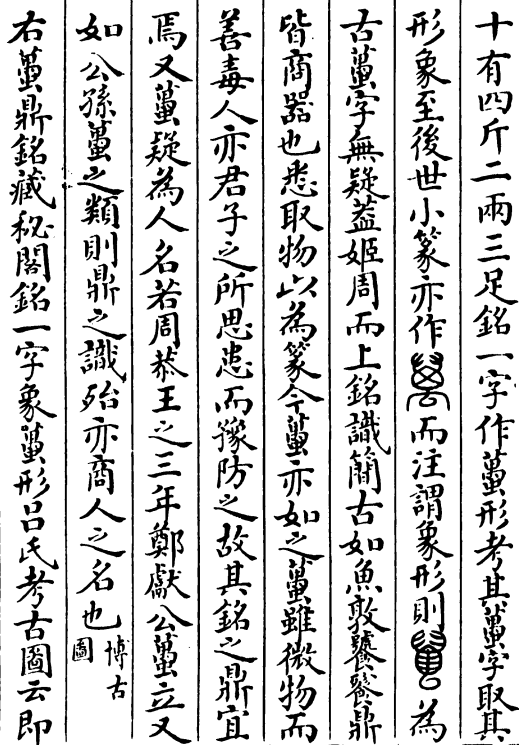 十有四斤二兩三足銘一字作蠆形考其蠆字取其
形象至後世小篆亦作而注謂象形則為
古蠆字無疑葢姬周而上銘識簡古如魚敦饕餮鼎
皆商器也悉取物以為篆今蠆亦如之蠆雖微物而
善毒人亦君子之所思患而豫防之故其銘之鼎宜
焉又蠆疑為人名若周恭王之三年鄭獻公蠆立又
如公孫蠆之類則鼎之識殆亦商人之名也博古
圖
右蠆鼎銘藏秘閣銘一字象蠆形吕氏考古圖云即